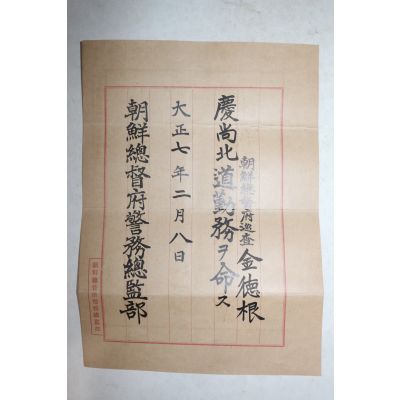 朝鮮總督府巡査 金徳根
慶尚北道勤務ヲ命ス
大正七年二月八日
朝鮮總督府警務總監部